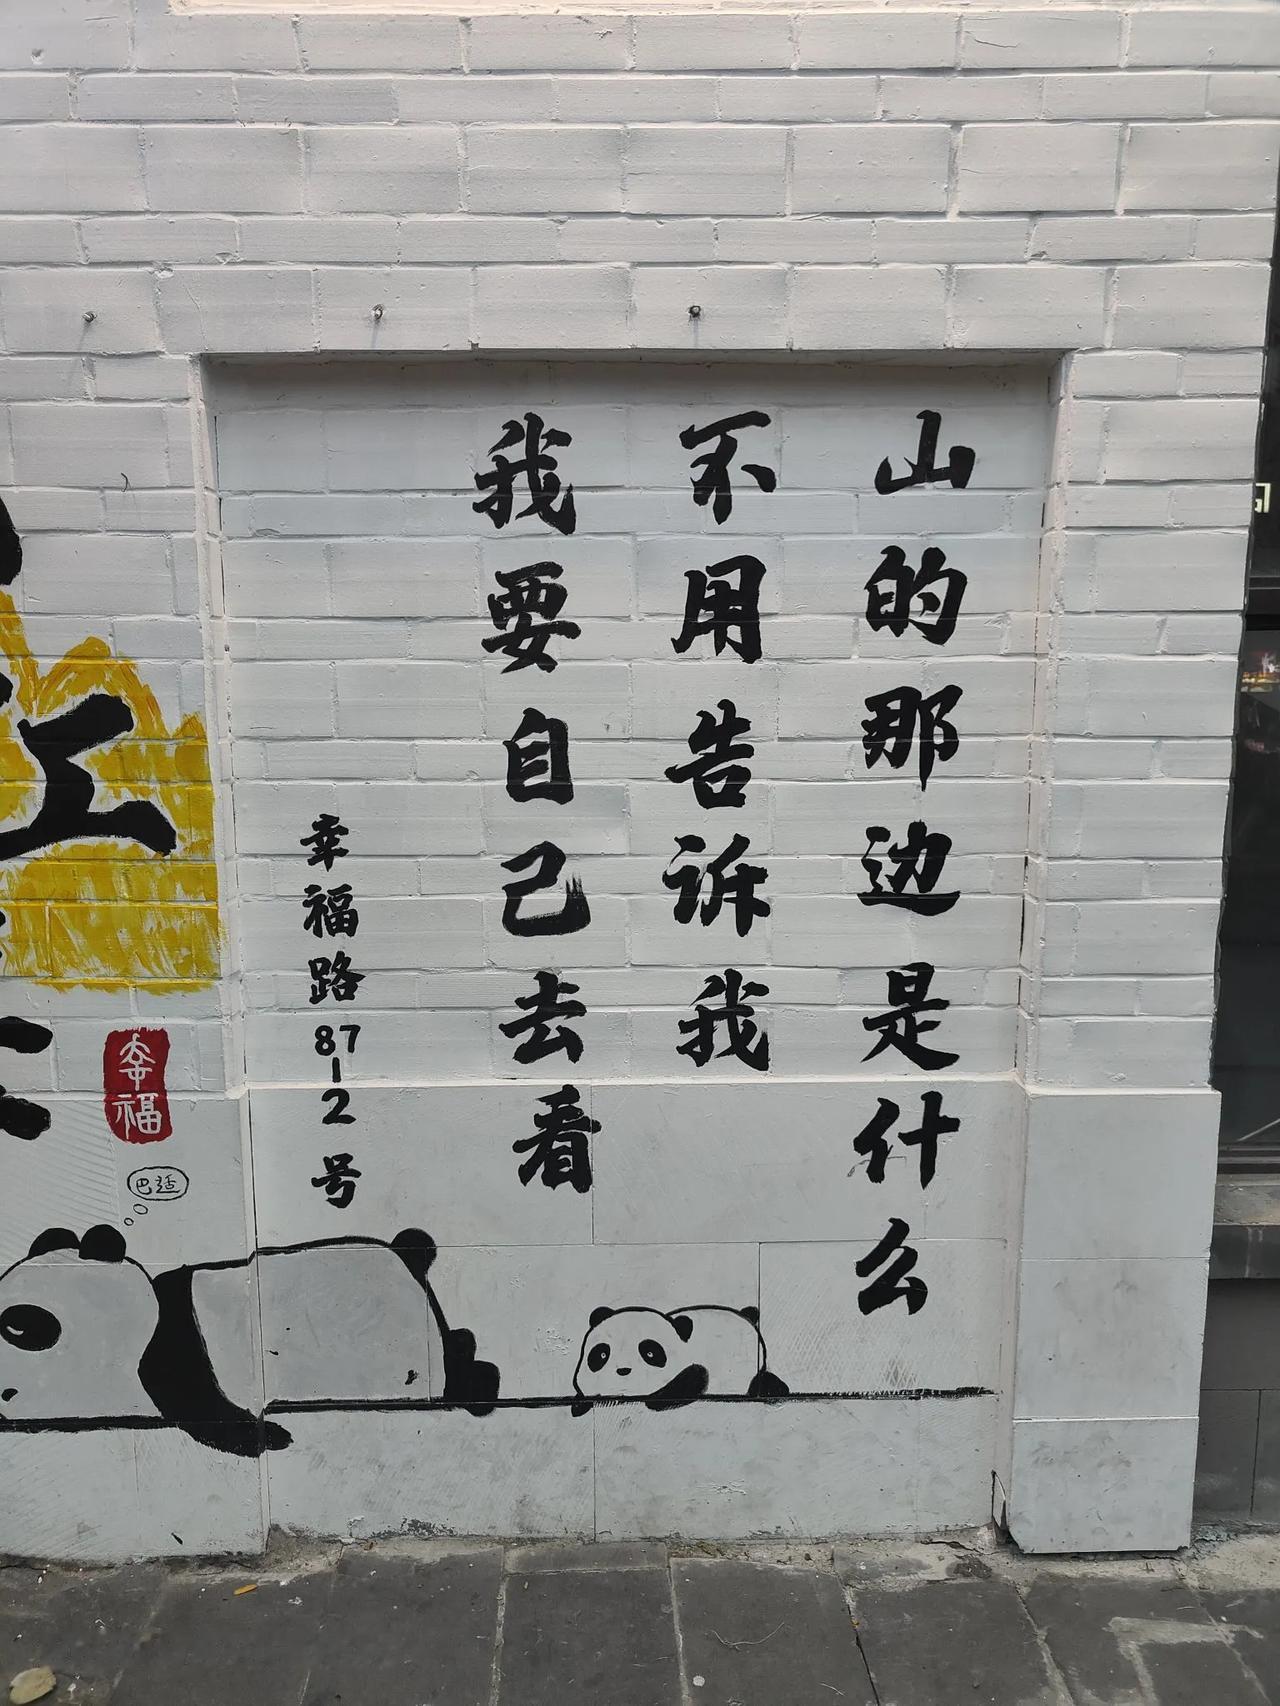 山的那边是什么
不用告诉我
我要自己去看
幸福路87-2号
江
幸福
巴适